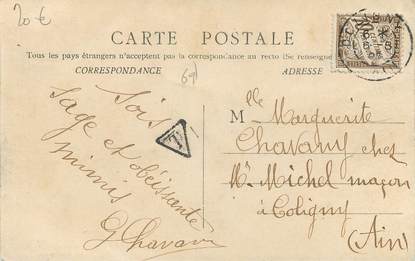 20 €
CARTE POSTALE
Tous les pays étrangers n'acceptent pas la correspondance au recto (Se renseigner
CORRESPONDANCE
69
ADRESSE
Sois
sage et obéissante
mimis
G Chavany
T
Mlle Marguerite
Chavany chez
Mr Michel maçon
à Coligny
(Ain)